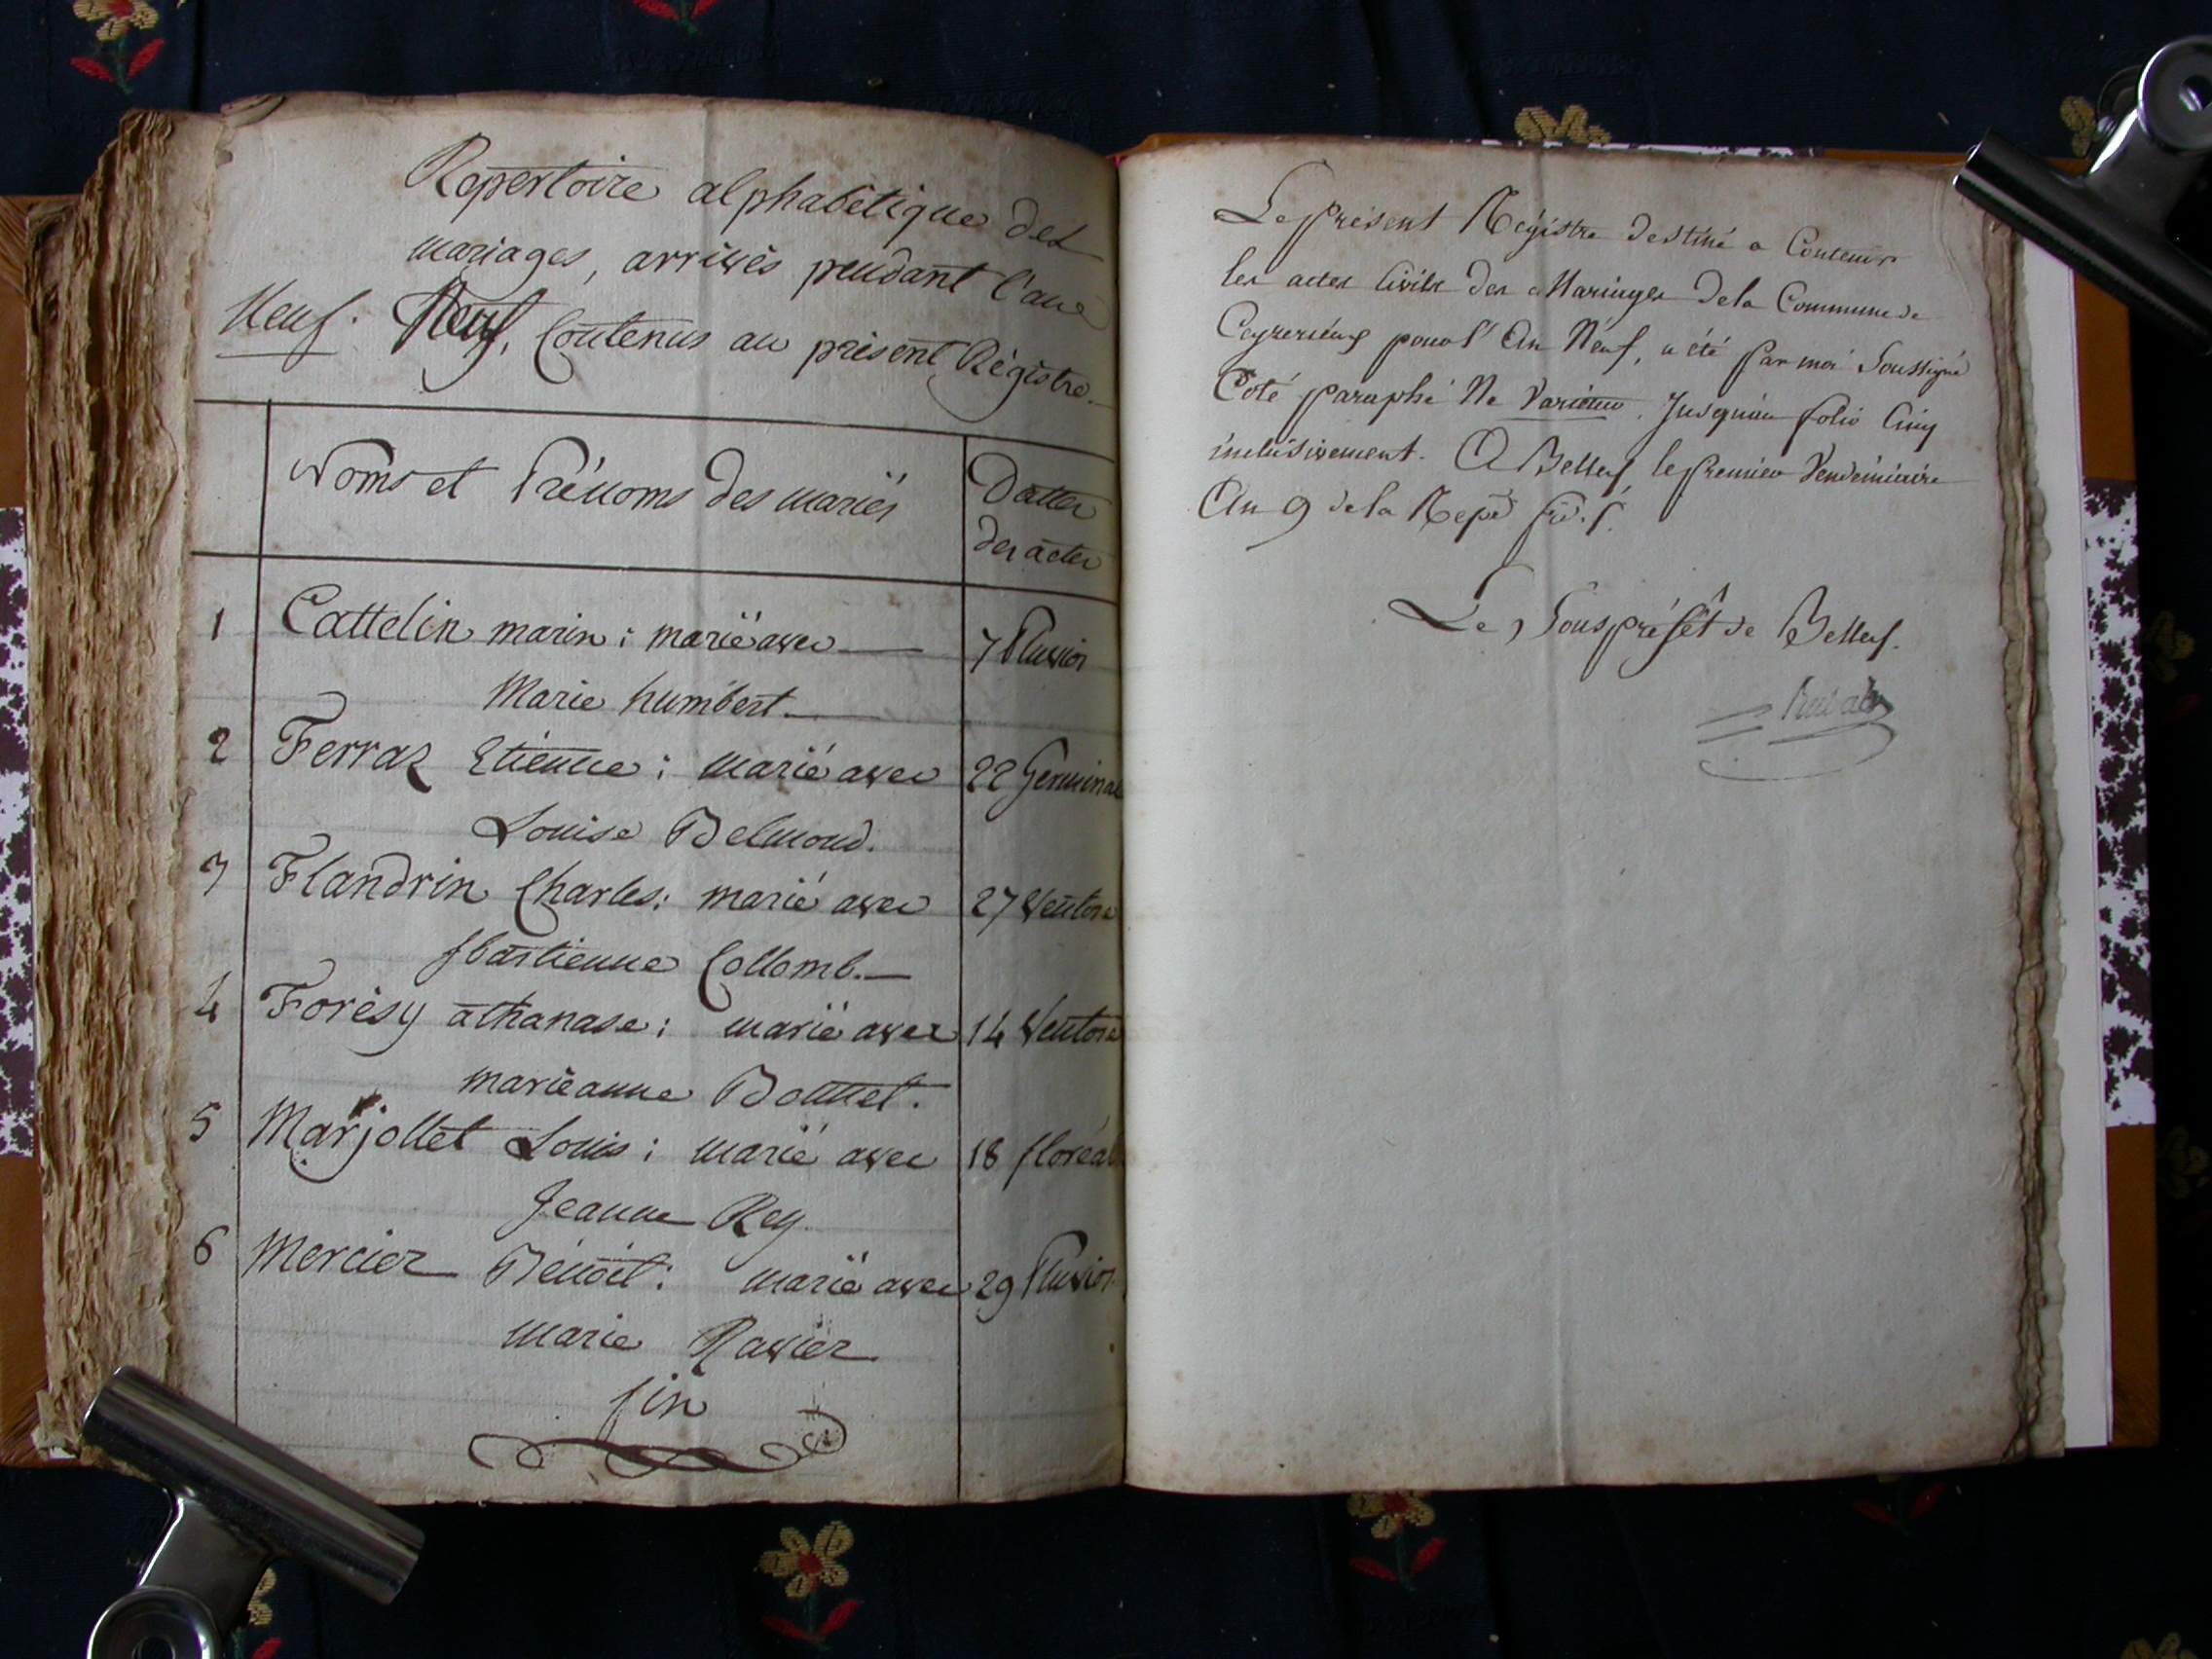 Repertoire alphabétique des
mariages, arrivés pendant l'ane
Neuf. Neuf, Contenus au présent Régistre.
Noms et Prénoms des mariés
Dattes
des actes
1 Cattelin marin : marié avec 7 Pluvios
Marie humbert.
2 Ferraz Etienne : marié avec 22 Germinal
Louise Belmond.
3 Flandrin Charles : marié avec 27 Ventose
sbastienne Collomb.
4 Forésy athanase : marié avec 14 Ventose
marieanne Bonnet.
5 Marjollet Louis : marié avec 18 floréal
Jeanne Rey
6 Mercier Bénoit : marié avec 29 Pluvios
marie Ravier
fin
Le présent Régistre destiné a Contenir
les actes Civils des Mariages de la Commune de
Ceyzerieux pour l'An Neuf, a été par moi Soussigné
Coté paraphé Ne Varietur, Jusqu'au folio Cinq
inclusivement. A Belley, le premier Vendémiaire
An 9 de la Repe
Le Souspréfêt de Belley.